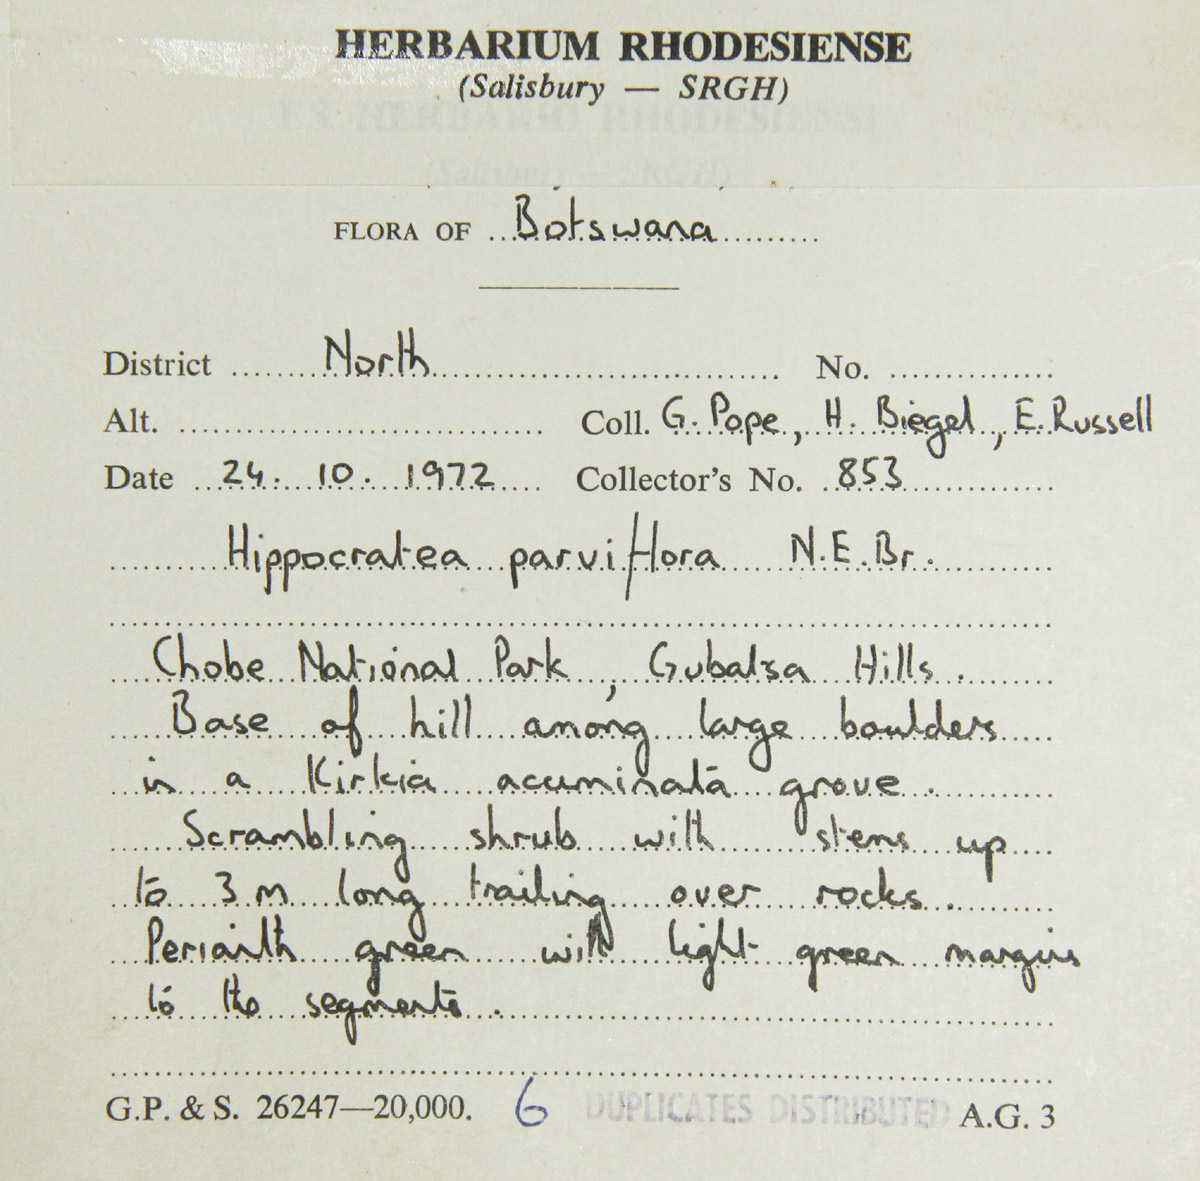 HERBARIUM RHODESIENSE
(Salisbury — SRGH)
EX HERBARIO RHODESIENSI
(Salisbury — SRGH)
FLORA OF Botswana
District North No.
Alt. Coll. G. Pope, H. Biegel, E. Russell
Date 24. 10. 1972 Collector's No. 853
Hippocratea parviflora N.E.Br.
Chobe National Park, Gubatsa Hills.
Base of hill among large boulders
in a Kirkia acuminata grove.
Scrambling shrub with stems up
to 3 m long trailing over rocks.
Perianth green with light green margins
to the segments.
G.P. & S. 26247—20,000. 6 DUPLICATES DISTRIBUTED A.G. 3